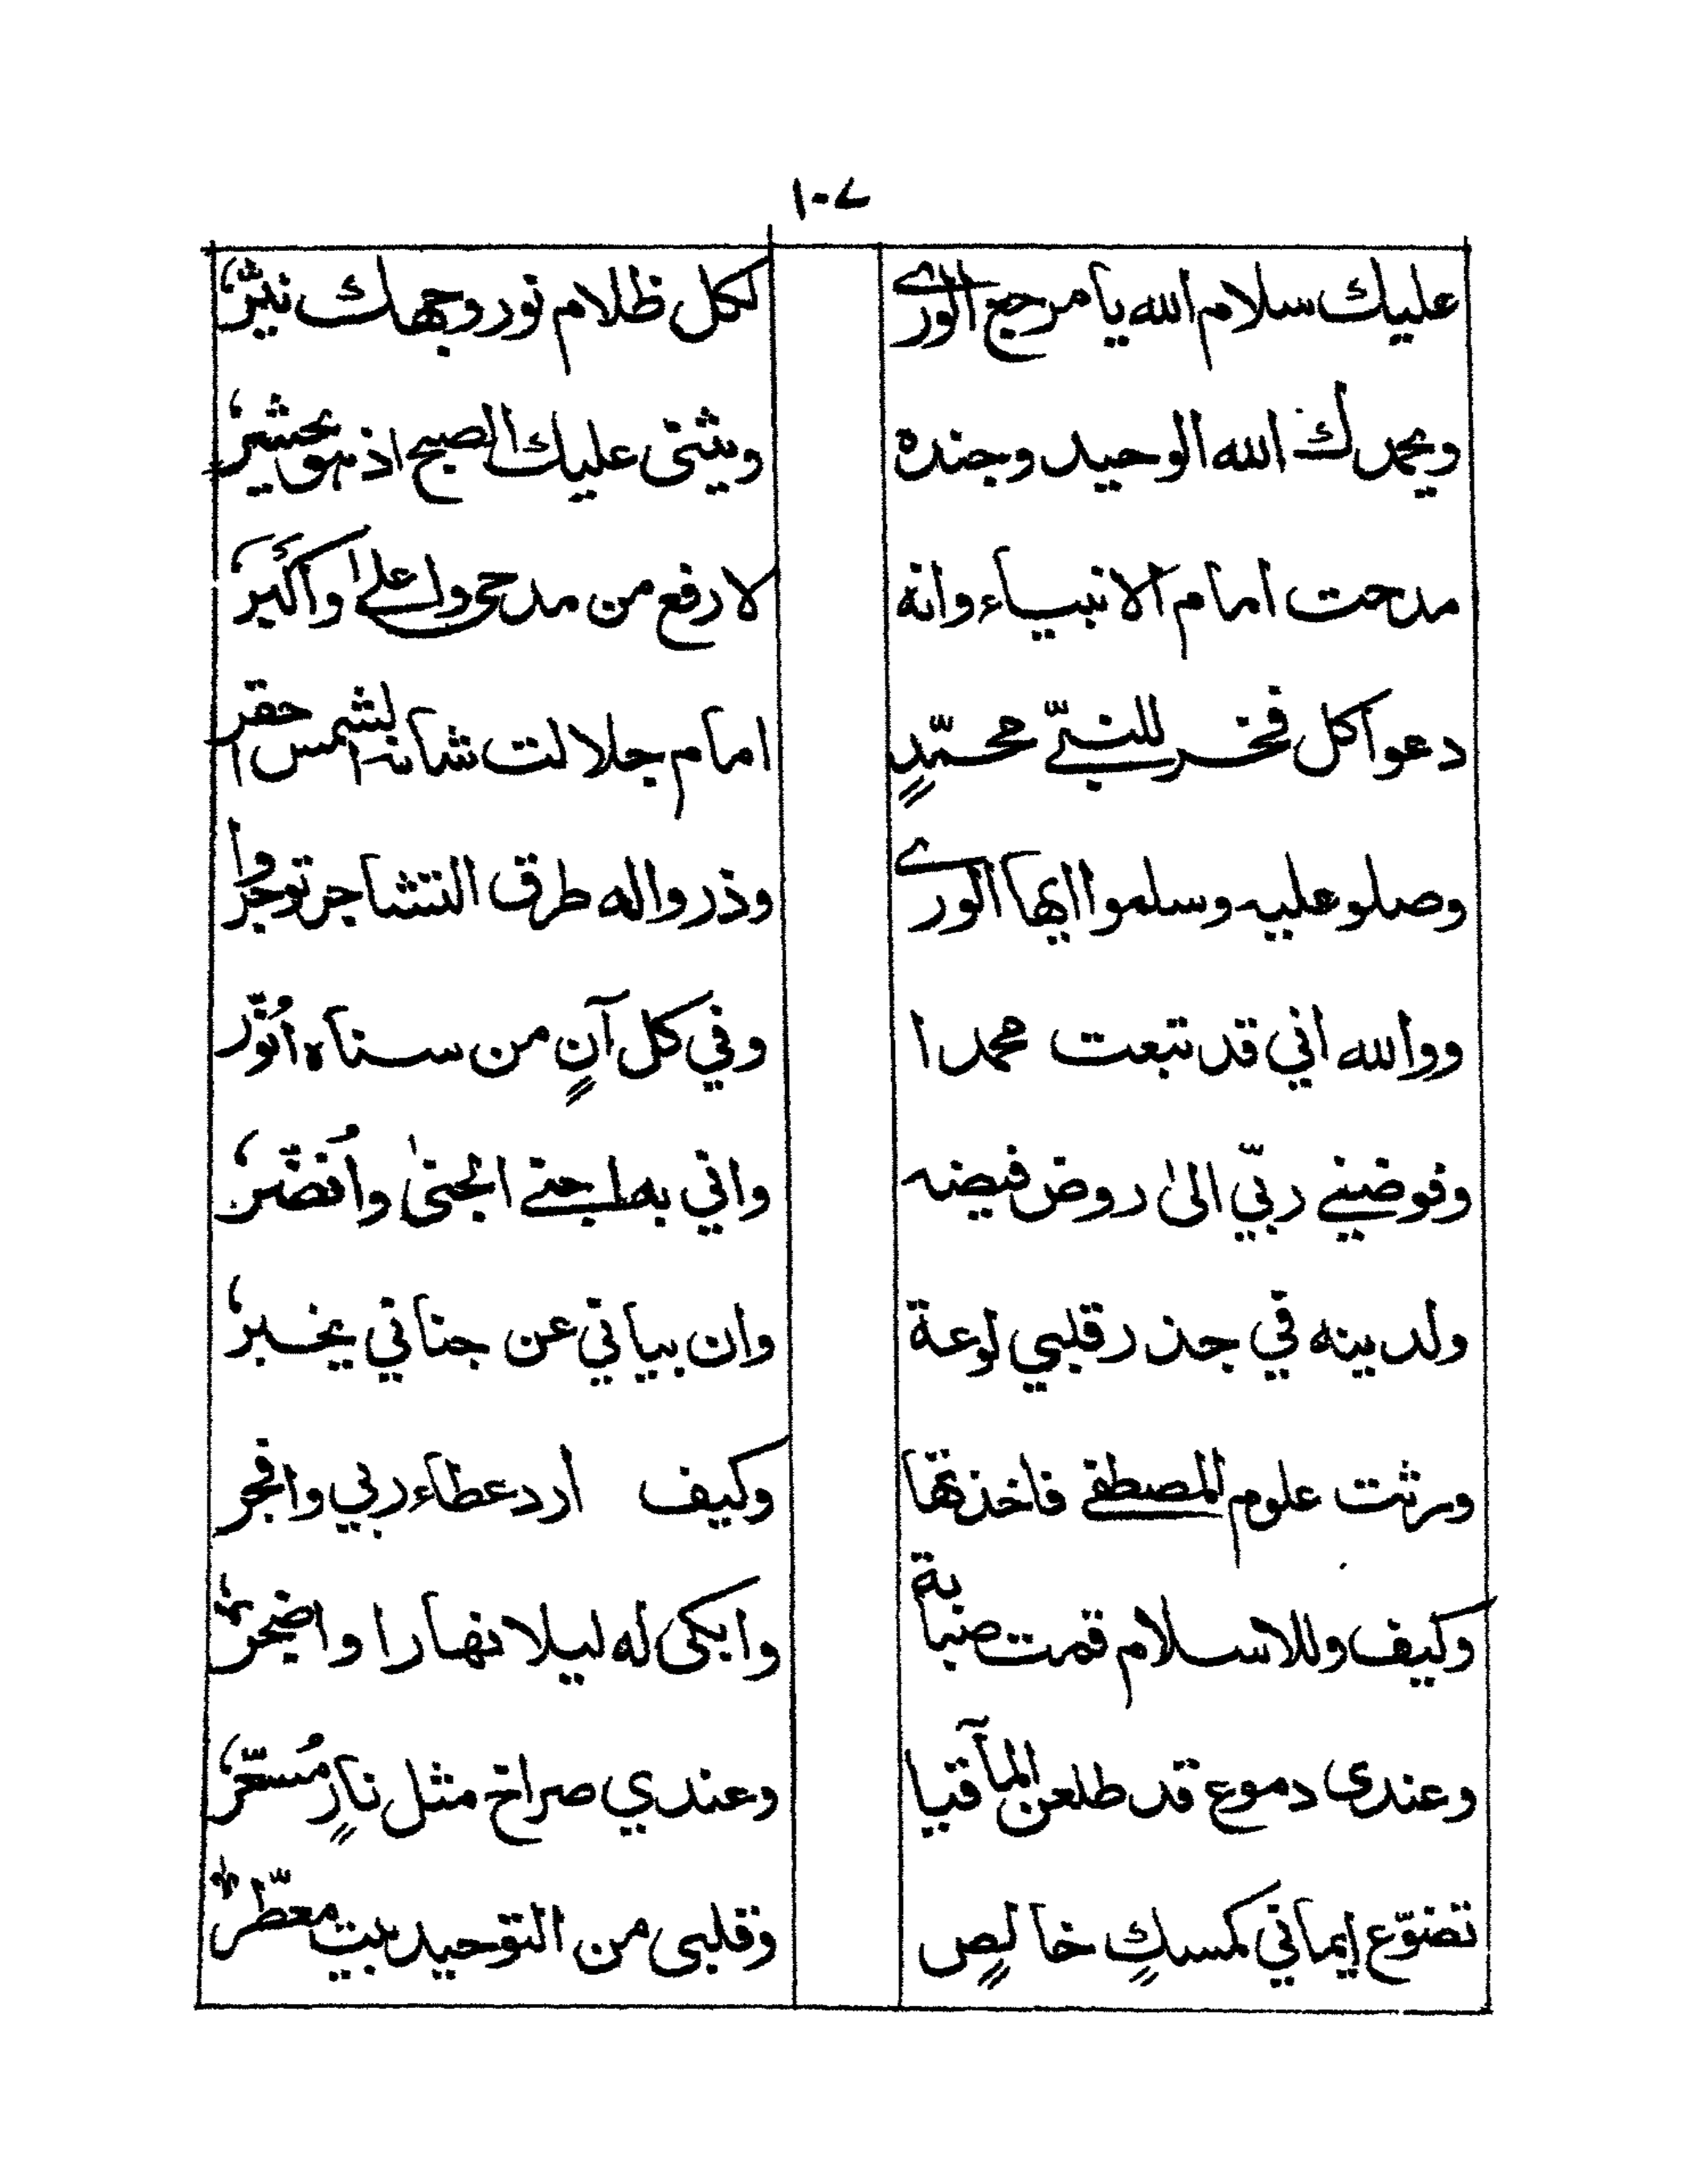 ١٠٧
عليك سلام الله يا مرجع الورى لكل ظلام نور وجهك نيّر
ويحمدك الله الوحيد وجنده ويثنى عليك الصبح اذ هو يحشر
مدحت امام الانبياء وانه لارفع من مدحى واعلى واكبر
دعوا كل فخر للنبيّ محمّدٍ امام جلالت شانه الشمس احقر
وصلو عليه وسلموا ايها الورى وذروا له طرق التشاجر توجروا
ووالله اني قد تبعت محمدا وفي كل آنٍ من سناه اُنوّر
وفوضنى ربّي الىٰ روض فيضه واني به اجنى الجنىٰ واُنضّر
ولدينه في جذر قلبي لوعة وان بياني عن جناني يخبر
ورثت علوم المصطفى فاخذتها وكيف ارد عطاء ربي وافجر
وكيف وللاسلام قمت صبابة وابكى له ليلا نهارا واضجر
وعندى دموع قد طلعن المآقيا وعندي صراخ مثل نارٍ مُسعّر
تضوّع إيماني كمسكٍ خالصٍ وقلبى من التوحيد بيت معطّر